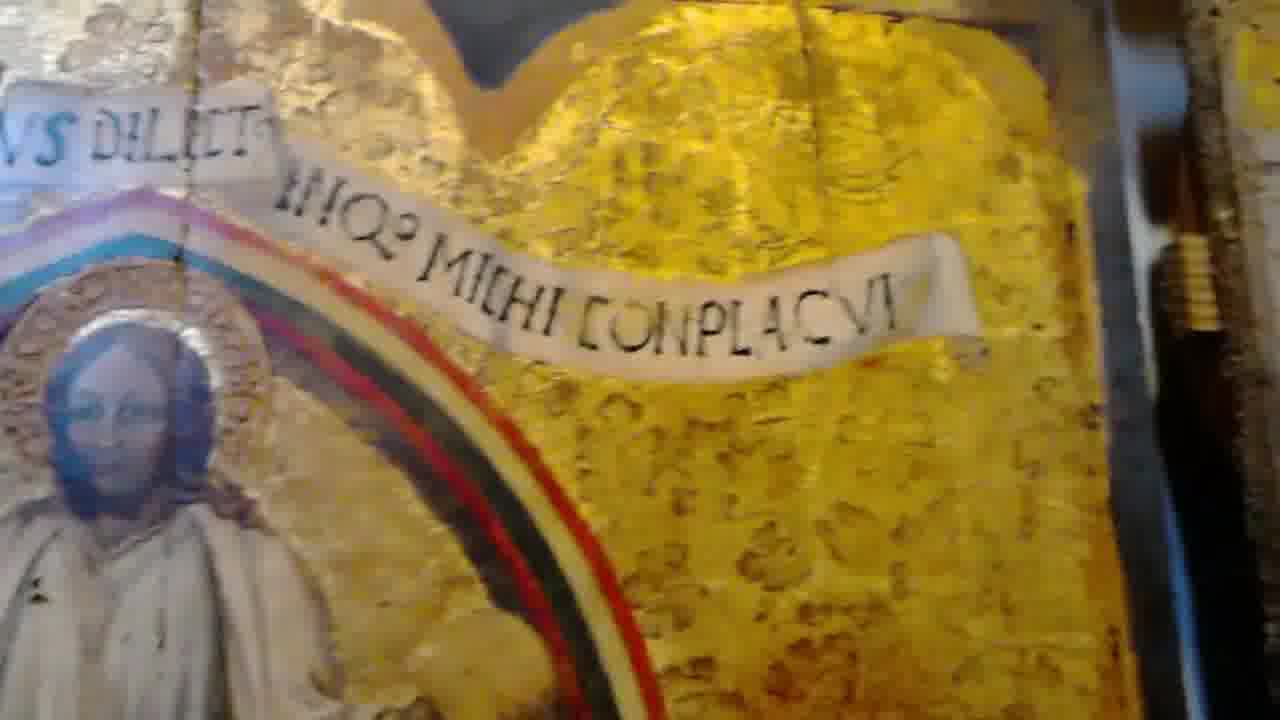 VS DILECT
INQƷ MICHI CONPLACVI